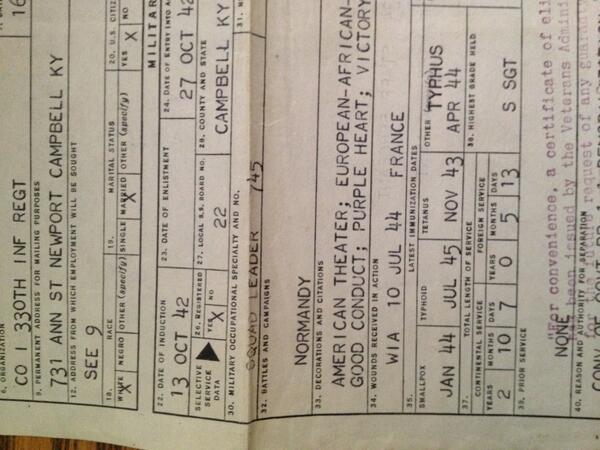 6. ORGANIZATION
CO I 330TH INF REGT
9. PERMANENT ADDRESS FOR MAILING PURPOSES
731 ANN ST NEWPORT CAMPBELL KY
12. ADDRESS FROM WHICH EMPLOYMENT WILL BE SOUGHT
SEE 9
18. RACE
WHITE NEGRO OTHER (specify)
X
19. MARITAL STATUS
SINGLE MARRIED OTHER (specify)
X
20. U.S. CITIZ
YES NO
X
MILITAR
22. DATE OF INDUCTION
13 OCT 42
23. DATE OF ENLISTMENT
24. DATE OF ENTRY INTO A
27 OCT 42
SELECTIVE SERVICE DATA
26. REGISTERED
YES NO
X
27. LOCAL S.S. BOARD NO.
22
28. COUNTY AND STATE
CAMPBELL KY
30. MILITARY OCCUPATIONAL SPECIALTY AND NO.
SQUAD LEADER 745
31.
32. BATTLES AND CAMPAIGNS
NORMANDY
33. DECORATIONS AND CITATIONS
AMERICAN THEATER; EUROPEAN-AFRICAN-
GOOD CONDUCT; PURPLE HEART; VICTORY
34. WOUNDS RECEIVED IN ACTION
WIA 10 JUL 44 FRANCE
35. LATEST IMMUNIZATION DATES
SMALLPOX TYPHOID TETANUS OTHER TYPHUS
JAN 44 JUL 45 NOV 43 APR 44
37. TOTAL LENGTH OF SERVICE
CONTINENTAL SERVICE FOREIGN SERVICE
YEARS MONTHS DAYS YEARS MONTHS DAYS
2 10 7 0 5 13
38. HIGHEST GRADE HELD
S SGT
39. PRIOR SERVICE
"For convenience, a certificate of eli
NONE been issued by the Veterans Admini
request of any guaranty
40. REASON AND AUTHORITY FOR SEPARATION